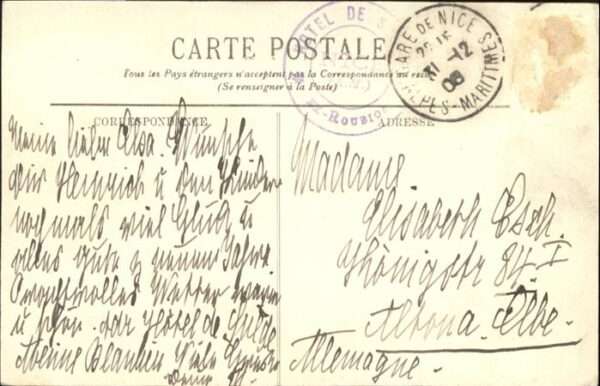 CARTE POSTALE
Tous les Pays étrangers n'acceptent pas la Correspondance au recto
(Se renseigner à la Poste)
HOTEL DE S
NICE
GARE DE NICE
31 -12
08
ALPES-MARITIMES
CORRESPONDANCE
ADRESSE
Meine liebe Elsa. Wünsche
Dir Heinrich u den Kinder
nochmals viel Glück u
alles gute z neuen Jahre
Prachtvolles Wetter warm
u schön. Hôtel de
Viele Grüsse
Madame
Elisabeth Esch.
Königstr 84 I
Altona. Elbe.
Allemagne.